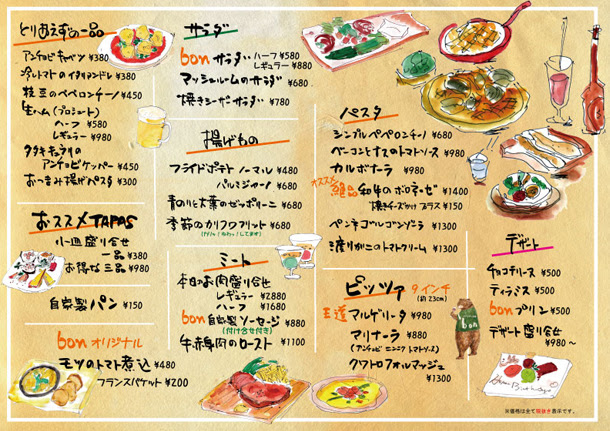 とりあえずの一品
アンチョビキャベツ ¥380
冷トマトのイタリアンドレ ¥380
枝豆のペペロンチーノ ¥450
生ハム(プロシュート)
ハーフ ¥580
レギュラー ¥980
タタキキュウリの
アンチョビケッパー ¥450
おつまみ揚げパスタ ¥300
おススメTAPAS
小皿盛り合せ
一品 ¥380
お得な三品 ¥980
自家製パン ¥150
bon オリジナル
モツのトマト煮込 ¥480
フランスバケット ¥200
サラダ
bon サラダ ハーフ ¥580
レギュラー ¥880
マッシュルームのサラダ ¥680
焼きシーザーサラダ ¥780
揚げもの
フライドポテト ノーマル ¥480
パルミジャーノ ¥680
青のりと大葉のゼッポリーニ ¥680
季節のカリフワフリット ¥680
ミート
本日のお肉盛り合せ
レギュラー ¥2880
ハーフ ¥1680
bon 自家製ソーセージ ¥880
(付け合せ付き)
牛赤身肉のロースト ¥1100
パスタ
シンプルペペロンチーノ ¥680
ベーコンとナスのトマトソース ¥980
カルボナーラ ¥980
オススメ 絶品 和牛のボロネーゼ ¥1400
焼きチーズのせ プラス ¥150
ペンネゴルゴンゾーラ ¥1300
渡りガニのトマトクリーム ¥1300
ピッツァ 9インチ
(約23cm)
王道 マルゲリータ ¥980
マリナーラ ¥880
(アンチョビ ニンニク トマトソース)
クアトロフォルマッジュ
¥1300
デザート
チョコテリーヌ ¥500
ティラミス ¥500
bon プリン ¥500
デザート盛り合せ
¥980〜
bon
※価格は全て税抜き表示です。